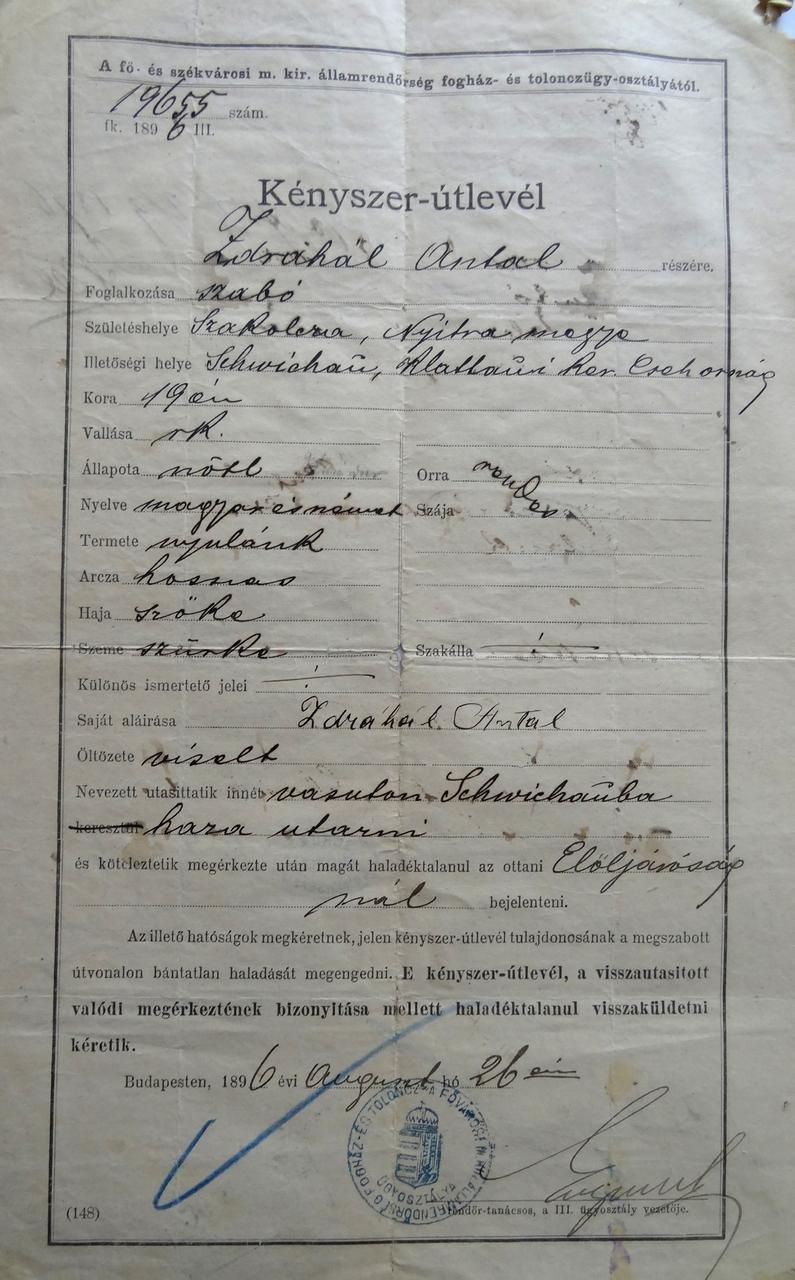 A fő- és székvárosi m. kir. államrendőrség fogház- és tolonczügy-osztályától.
19655 szám.
fk. 1896 III.
Kényszer-útlevél
Zdráhál Antal részére.
Foglalkozása szabó
Születéshelye Szakolcza, Nyitra megye
Illetőségi helye Schwichau, Klattaui ker. Csehország
Kora 19 év
Vallása rk.
Állapota nőtl
Orra rendes
Nyelve magyar és német
Szája
Termete nyulánk
Arcza hosszas
Haja szőke
Szeme szürke
Szakálla
Különös ismertető jelei
Saját aláirása Zdráhál Antal
Öltözete viselt
Nevezett utasittatik innét vasuton Schwichauba
keresztül haza utazni
és köteleztetik megérkezte után magát haladéktalanul az ottani Elöljáróság
nál bejelenteni.
Az illető hatóságok megkéretnek, jelen kényszer-útlevél tulajdonosának a megszabott
útvonalon bántatlan haladását megengedni. E kényszer-útlevél, a visszautasitott
valódi megérkeztének bizonyitása mellett haladéktalanul visszaküldetni
kéretik.
Budapesten, 1896 évi August hó 26 án
FOGHÁZ- ÉS TOLONCZ- A FŐVÁROSI M. KIR. ÁLLAMRENDŐRSÉG
ÜGYOSZTÁLYA
rendőr-tanácsos, a III. ügyosztály vezetője.
(148)